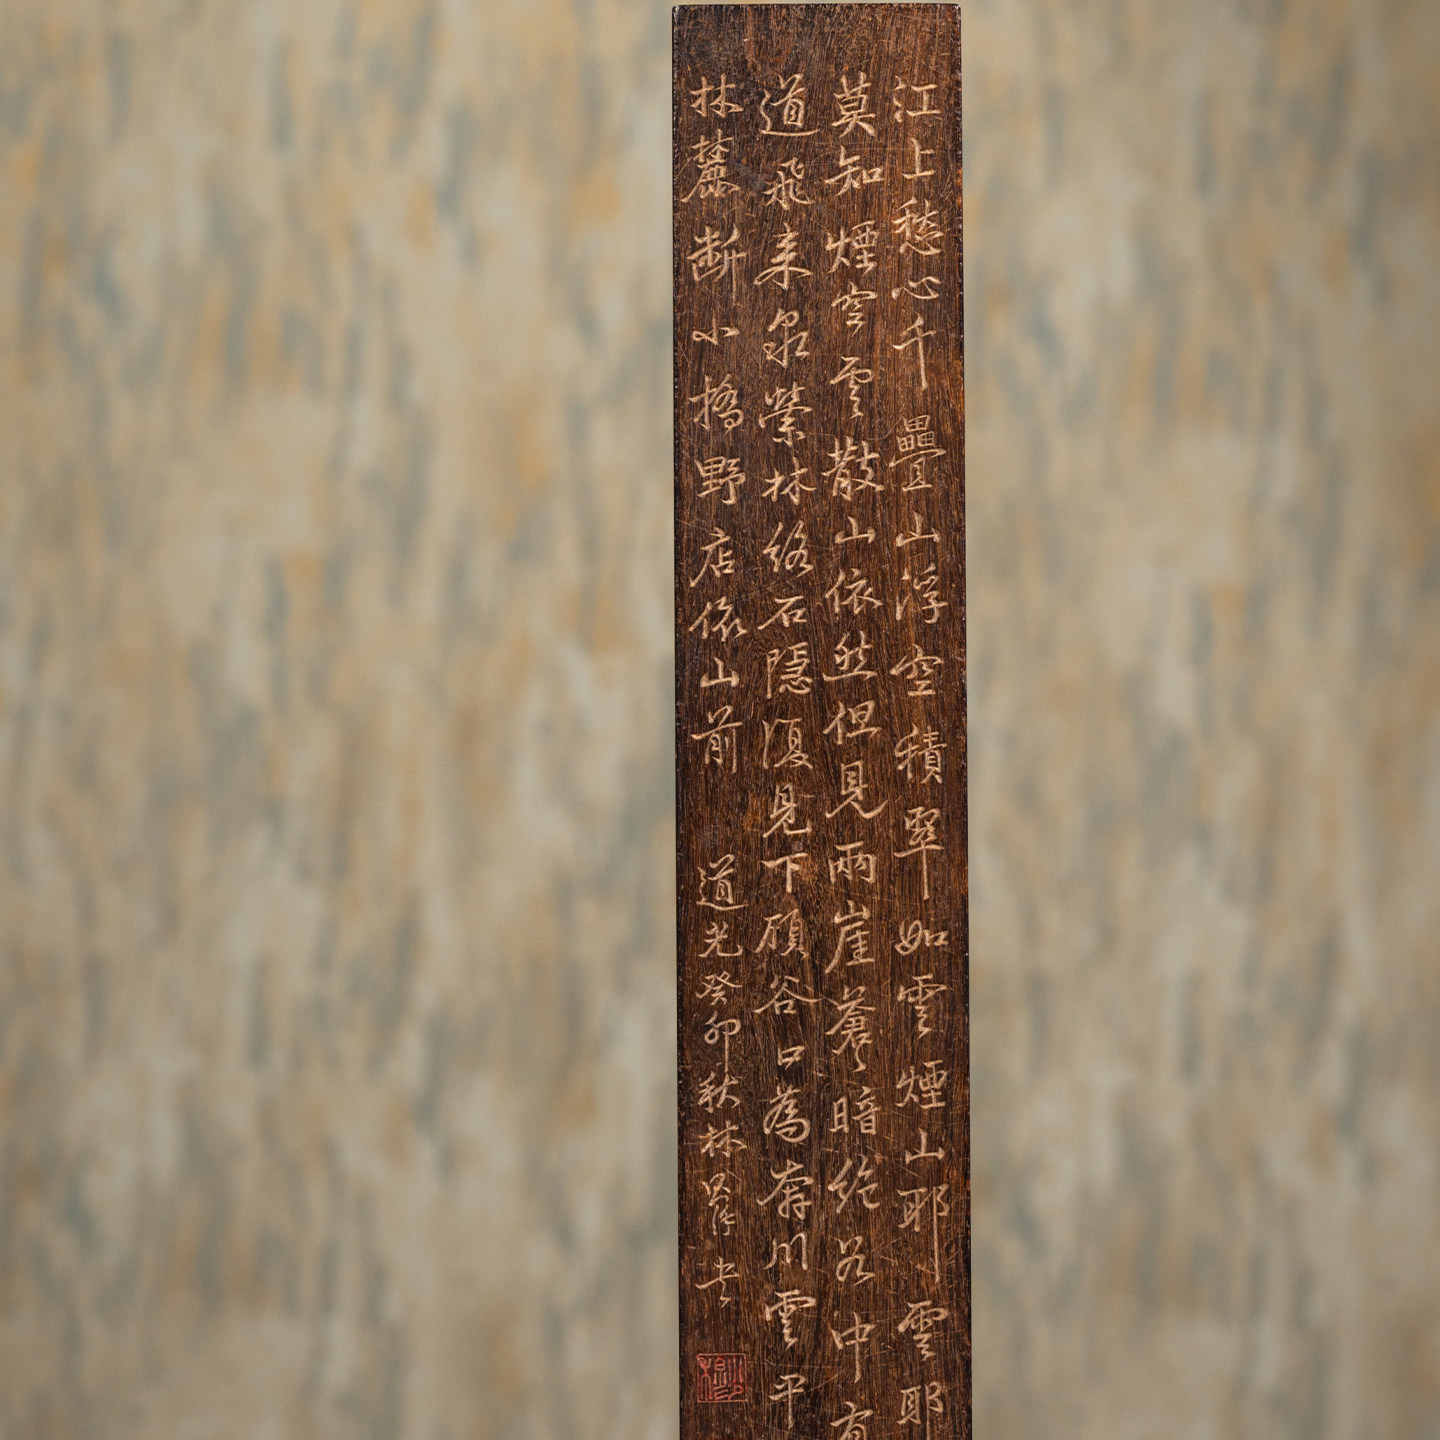 江上愁心千疊山浮空積翠如雲煙山耶雲耶
莫知煙空雲散山依然但見兩崖蒼〻暗絕谷中有
道飛来泉縈林絡石隱復見下顧谷口為奔川雲平
林麓断小橋野店依山前 道光癸卯秋林則徐書